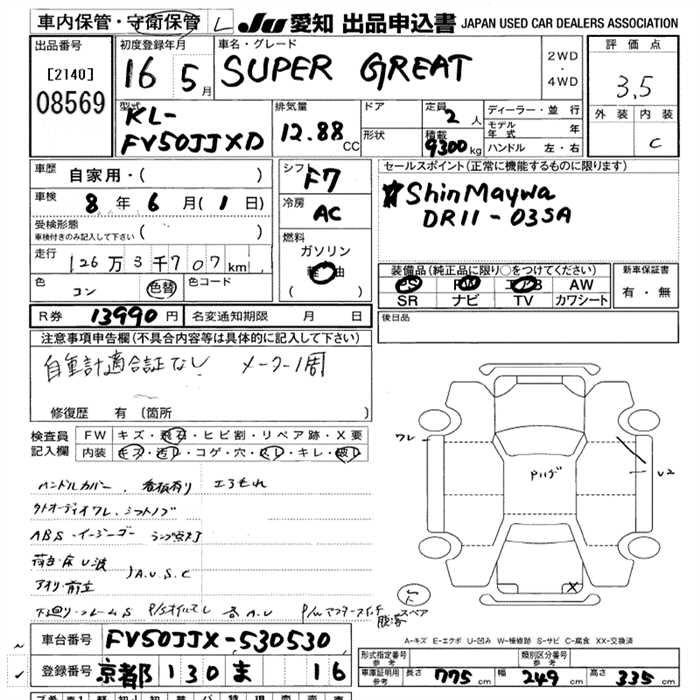 車内保管・守衛保管 L JU 愛知 出品申込書 JAPAN USED CAR DEALERS ASSOCIATION
出品番号
[2140]
08569
初度登録年月
16 5月
車名・グレード
SUPER GREAT
2WD
・
4WD
評価点
3.5
外装 内装
C
型式
KL-
FV50JJXD
排気量
12.88 CC
ドア
形状
定員
2人
積載
9300kg
ディーラー・並行
モデル年式 年
ハンドル 左・右
車歴 自家用・( )
車検 8年6月(1日)
受検形態
車検付きのみ記入して下さい ( )
走行 126万3千707km
色 コン 色替 色コード
シフト
F7
冷房
AC
燃料
ガソリン
軽油
( )
セールスポイント(正常に機能するものに限ります)
ShinMaywa
DR11-03SA
装備品(純正品に限り○をつけてください)
PS PW エアB AW
SR ナビ TV カワシート
新車保証書
有・無
R券 13990円 名変通知期限 月 日
後日品
注意事項申告欄(不具合内容等は具体的に記入して下さい)
自重計適合証なし メーター1周
修復歴 有(箇所 )
検査員
記入欄
FW キズ・飛石・ヒビ割・リペア跡・X要
内装 キズ・汚レ・コゲ・穴・スレ・キレ・破レ
ハンドルカバー、看板有り エラもれ
クトオーディオワレ、シフトノブ
ABS・イージーゴー ランプ点灯
荷台・床U波
アオリ・前立
A.U.S.C
下廻り・フレームS P/Sオイルモレ 各A.U P/Wマスタースイッチ
ワレ
Pハゲ
U2
X
スペア
A-キズ E-エクボ U-凹み W-補修跡 S-サビ C-腐食 XX-交換済
車台番号 FV50JJX-530530
登録番号 京都 130 ま 16
形式指定番号 参考
類別区分番号 参考
車庫証明用 参考 長さ 775cm 幅 249cm 高さ 335cm